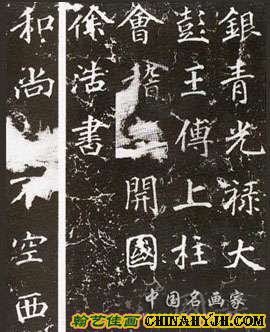 銀青光祿大
彭王傅上柱
會稽開國
徐浩書
和尚不空西
中国名画家
翰艺佳画 CHINAHYJH.COM